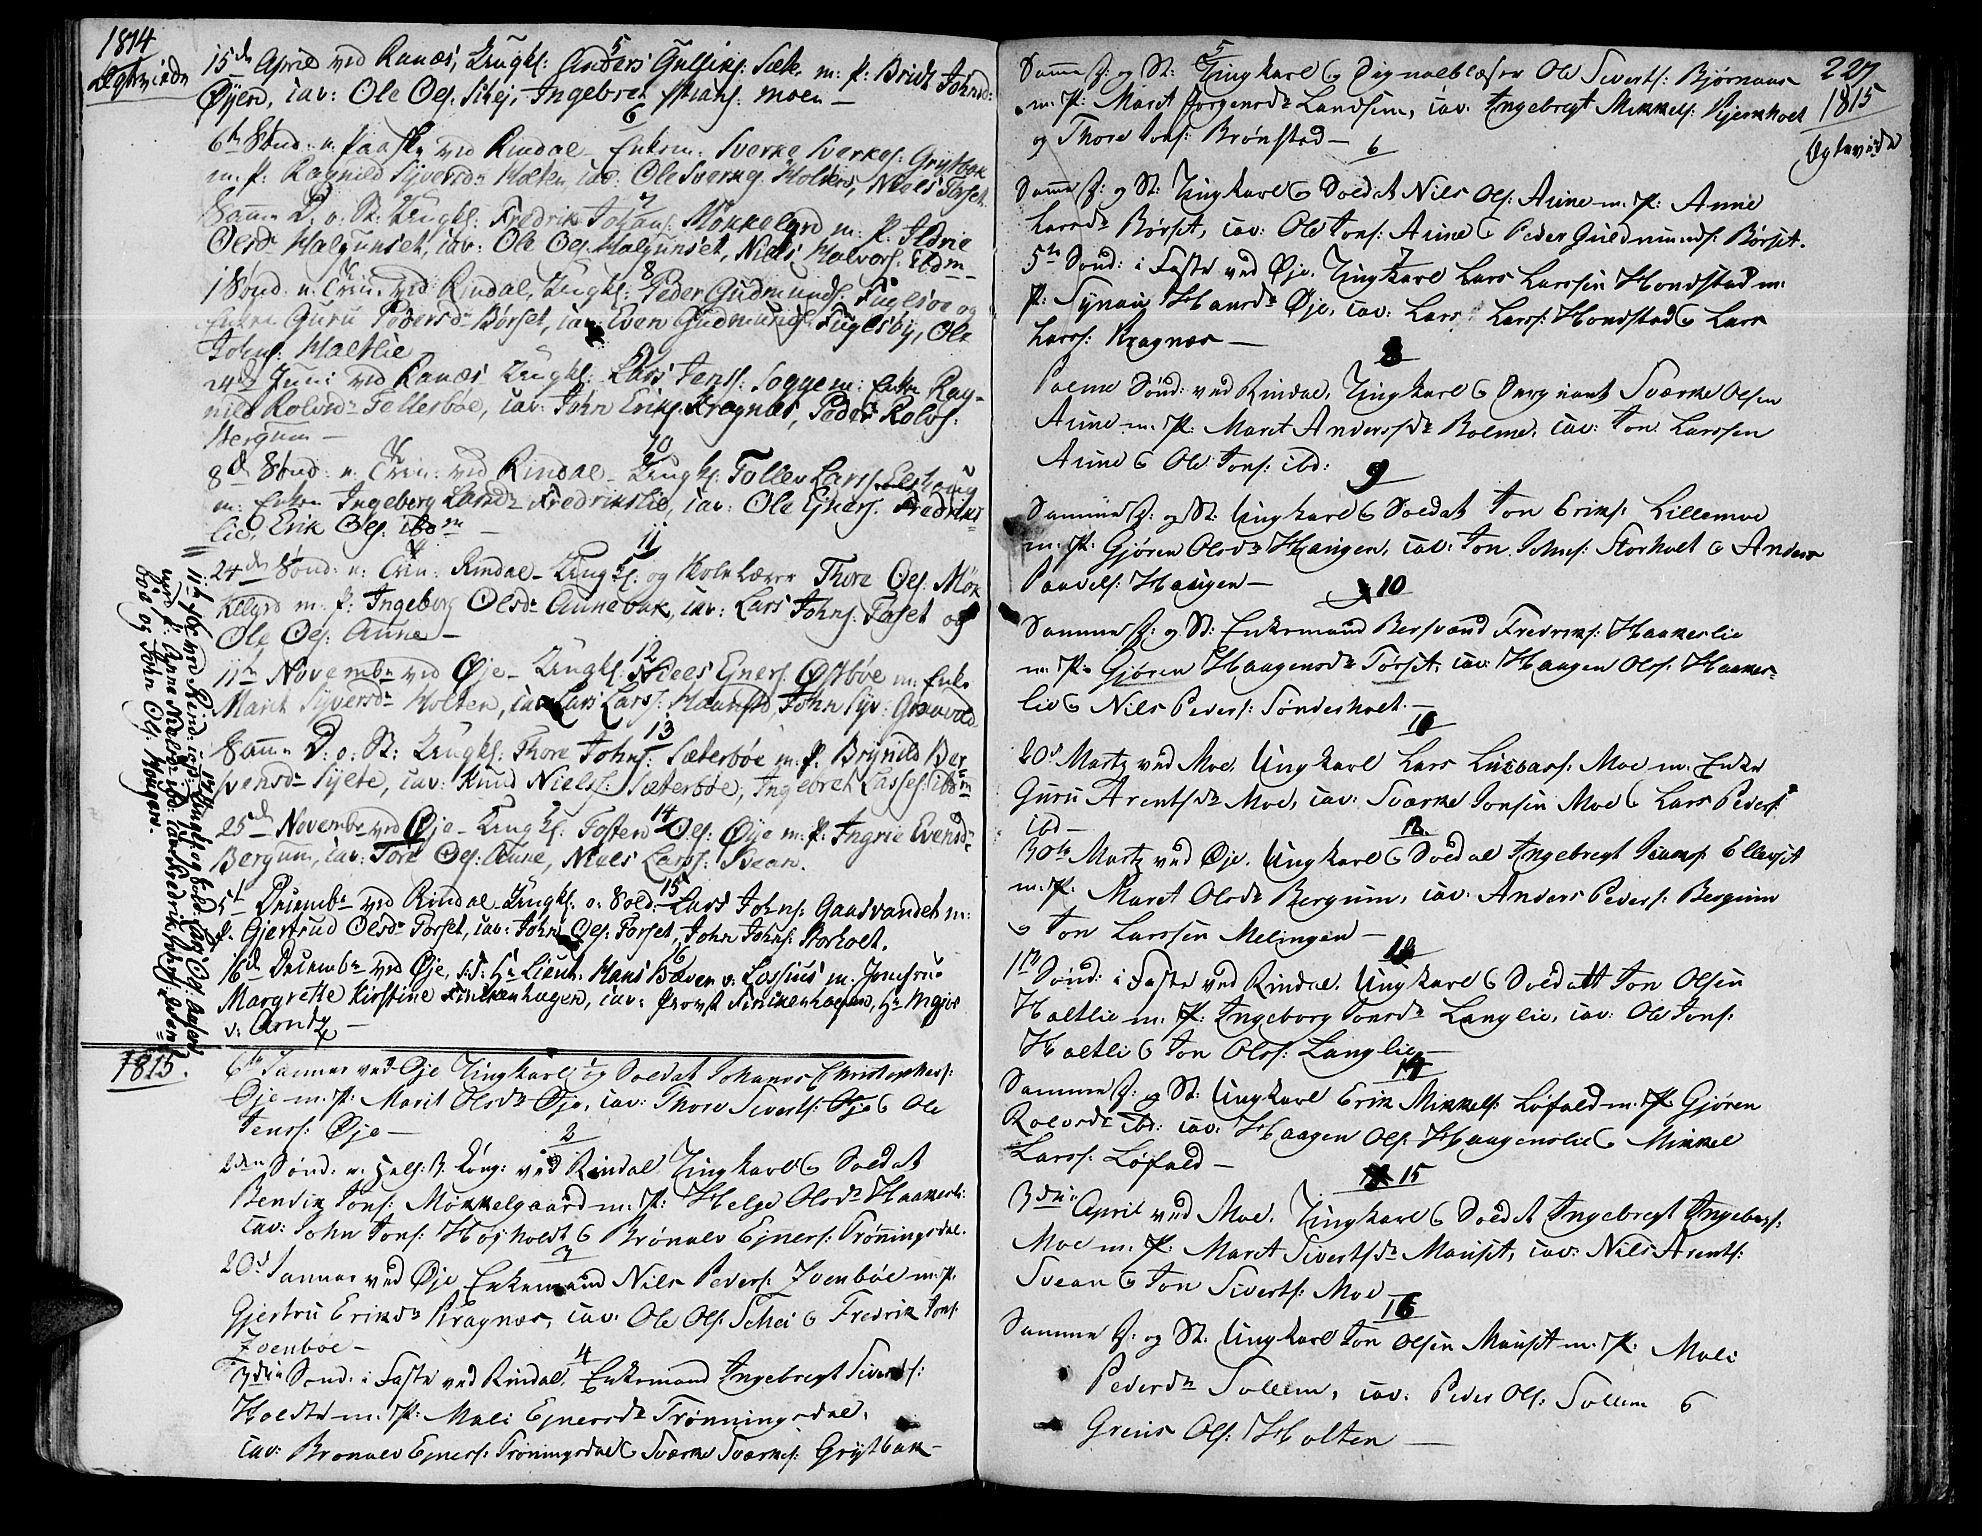 1814
Ægteviede
5
15de April ved Ranæs, Ungkl: Anders Gulliks: Sæt. m. P: Bridt Johnsd:
Øyen, cav: Ole Ols. Skej, Ingebret moen —
6
6te Sønd: e. Paaske ved Rindal Enkem. Sverke Sverkes: Grytbak
m. P. Ragnild Sjversdr Holten, cav: Ole Sverkes. Holten, Niels Torset.
7
Samme D. o. St: Ungkl: Fredrik Johans: Møkkelgrd m. P. Ildrie
Olsdr Halgunset, cav: Ole Ols. Halgunset, Niels Halvors. Ibdm —
8
1 Sønd. e. Trin. ved Rindal, Ungkl: Peder Gudmunds. Fuglsøe og
Enken Guru Pedersdr Børset, cav: Even Gudmunds. Fuglsøy, Ole
Johns. Haltlie
9
24de Juni ved Ranæs Ungkl: Lars Jenss: Sogge m: Enken Rag-
nild Rolvsdr Tellesbøe, cav: John Eriks. Kragnæs, Peder Rolvs.
Bergum —
10
8de Sønd. e. Trin: ved Rindal — Ungkl: Tollev Larss.
m. Enken Ingeberg Larsdr Fredrikslie, cav: Ole Ejners. Fredriks
lie, Erik Ols. ibdm —
11
24de Sønd: e. Trin: Rindal — Ungkl: og Skolelærer Thore Ols. Møk
kelgrd m. P: Ingeborg Olsdr Aunebak, cav: Lars Johns: Toset og
Ole Ols: Aune —
12
11te Novembr ved Øje — Ungkl: Niels Ejners. Østbøe m. Enke
Marit Syversdr Holten, cav: Lars Larss: Haunstd, John Syv: Grøvold
13
Samme D. o. St: Ungkl: Thore Johns: Sæterbøe m. P. Brynild Ber
svensdr Sylte, cav: Knud Nielss: Sæterbøe, Ingebret Lasses: ibdm
14
25de Novembr ved Øje — Ungkl: Tosten Ols: Øye m. P: Ingrie Evensdr
Bergum, cav: Tore Ols: Aune, Niels Larss: Svean.
15
5te Decembr ved Rindal Ungkl. o. Sold: Lars Johns: Gaasvandet m:
P. Gjertrud Olsdr Torset, cav: John Ols. Torset, John Johns: Storholt.
16
16de Decembr ved Øje, Hr Lieut. Hans Bøven v. Lossius m. Jomfrue
Margrette Kirstine Finkenhagen, cav: Provst Finkenhagen, Hr Major
v: Arntz —
1815.
1
6te Januar ved Øje Ungkarl og Soldat Johanes Christophers:
Øje m. P. Marit Olsdr Øje, cav: Thore Siverts: Øje & Ole
Jenss: Øje —
2
2den Sønd. e. Hell: 3 Kong: ved Rindal Ungkarl & Soldat
Bendix Jons: Møkkelgaard m. P: Helge Olsdr Haakesli:
cav: John Jons: Højholdt & Brønolv Ejners: Trønningsdal.
3
20de Januar ved Øje Enkemand Nils Peders: Zvenbøe m. P.
Gjertru Eriksdr Kragnæs, cav: Ole Ols. Schei & Fredrik Jons:
Zvenbøe —
4
3die Sønd: i Faste ved Rindal, Enkemand Ingebregt Siverts:
Holdte m. P: Mali Ejnersdr Trønningsdal,
cav: Brønolv Ejners: Trøningsdal & Sværke Sværkes: Grytbak —
227
1815
Ægteviede
5
Samme D: og St: Ungkarl & Signalblæser Ole Siverts: Bjørnaas
m. P: Marit Jorgensdr Landsem, cav: Ingebregt Mikkels: Kjernholt
og Thore Jons: Brønstad —
6
Samme D: og St: Ungkarl & Soldat Nils Ols: Aune m. P: Anne
Larsdr Børset, cav: Ole Jons: Aune & Peder Guldmunds: Børset.
7
5te Sønd: i Faste ved Øje, Ungkarl Lars Larssen Hondstad m.
P: Synnøv Hansdr Øje, cav: Lars Larss: Hondstad & Lars
Larss: Kragnæs —
8
Palme Sønd: ved Rindal, Ungkarl & Sergiant Sværke Olsen
Aune m. P: Marit Anderssdr Bolme, cav: Jon Larssen
Aune & Ole Jons: ibd:
9
Samme D: og St: Ungkarl & Soldat Jon Eriks: Lillemoe
m. P: Gjøren Olsdr Haugen, cav: Jon Johns: Storholt & Anders
Paavels: Haugen —
10
Samme D: og St: Enkemand Bersvend Fredriks: Haakeslie
m. P: Gjøren Haagensdr Torset, cav: Haagen Ols: Haakes-
lie & Nils Peders: Sønderholt —
11
20de Martz ved Moe, Ungkarl Lars Moe m. Enke
Guru Arentsdr Moe, cav: Sværke Jonsen Moe & Lars Peders:
ibd —
12
30te Martz ved Øje, Ungkarl & Soldat Ingebregt Ellevset
m. P: Marit Olsdr Bergum, cav: Anders Peders: Bergum
& Jon Larssen Melingen —
13
1ste Sønd: i Faste ved Rindal, Ungkarl & Soldatt Jon Olsen
Haltlie m. P: Ingeborg Jonsdr Langlie, cav: Ole Jons:
Haltli & Jon Ols: Langlie —
14
Samme D: og St: Ungkarl Erik Mikkels: Løfald m. P: Gjøren
Rolvsdr ibd: cav: Haagen Ols: Haagenslie & Mikkel
Larss: Løfald —
15
3die April ved Moe, Ungkarl & Soldat Ingebregt Ingebr:
Moe m. P: Marit Sivertsdr Mauset, cav: Nils Arents:
Svean & Jon Siverts: Moe
16
Samme D: og St: Ungkarl Jon Olsen Mauset m. P: Mali
Pedersdr Sollem, cav: Peder Ols: Sollem &
Greis Ols: Holten —